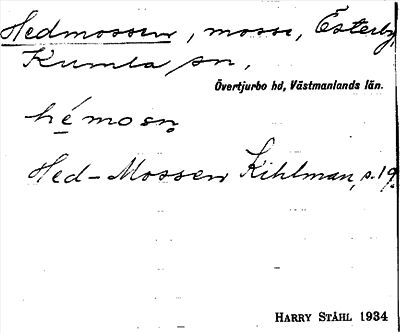 Hedmossen, mosse, Österby,
Kumla sn,
Övertjurbo hd, Västmanlands län.
hémosn.
Hed-Mossen Kihlman, s. 19.
HARRY STÅHL 1934